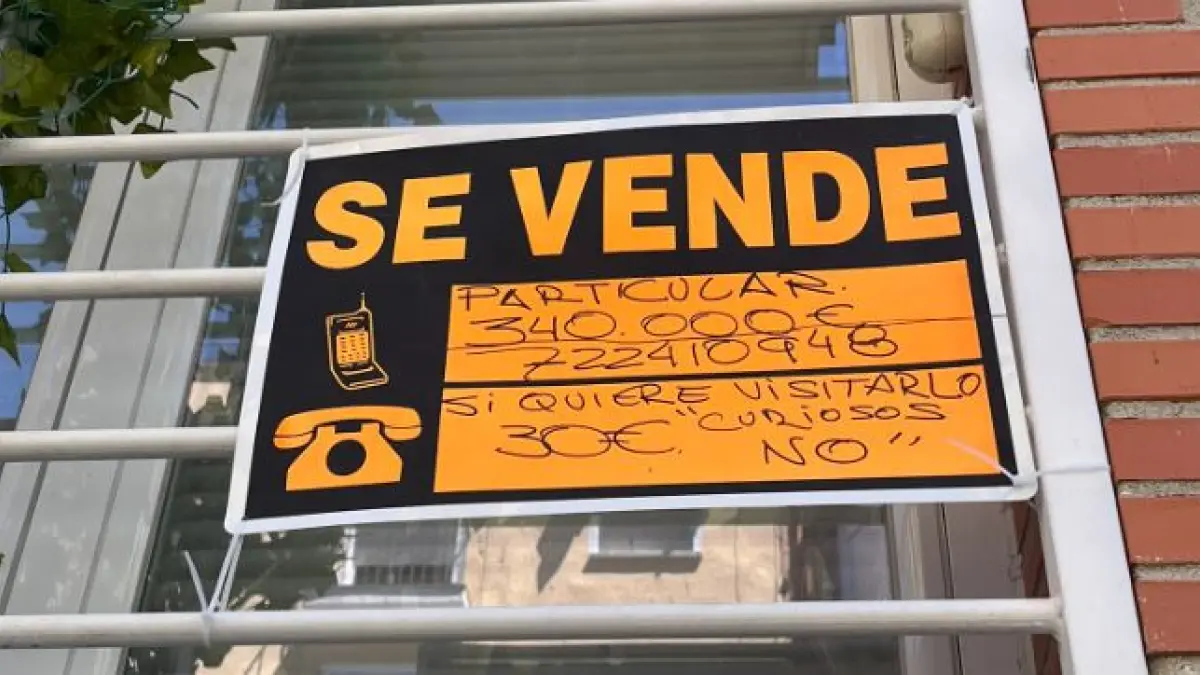 SE VENDE
PARTICULAR.
340.000€
722410948
Si QUIERE VISITARLO
30€. "CURIOSOS
NO"